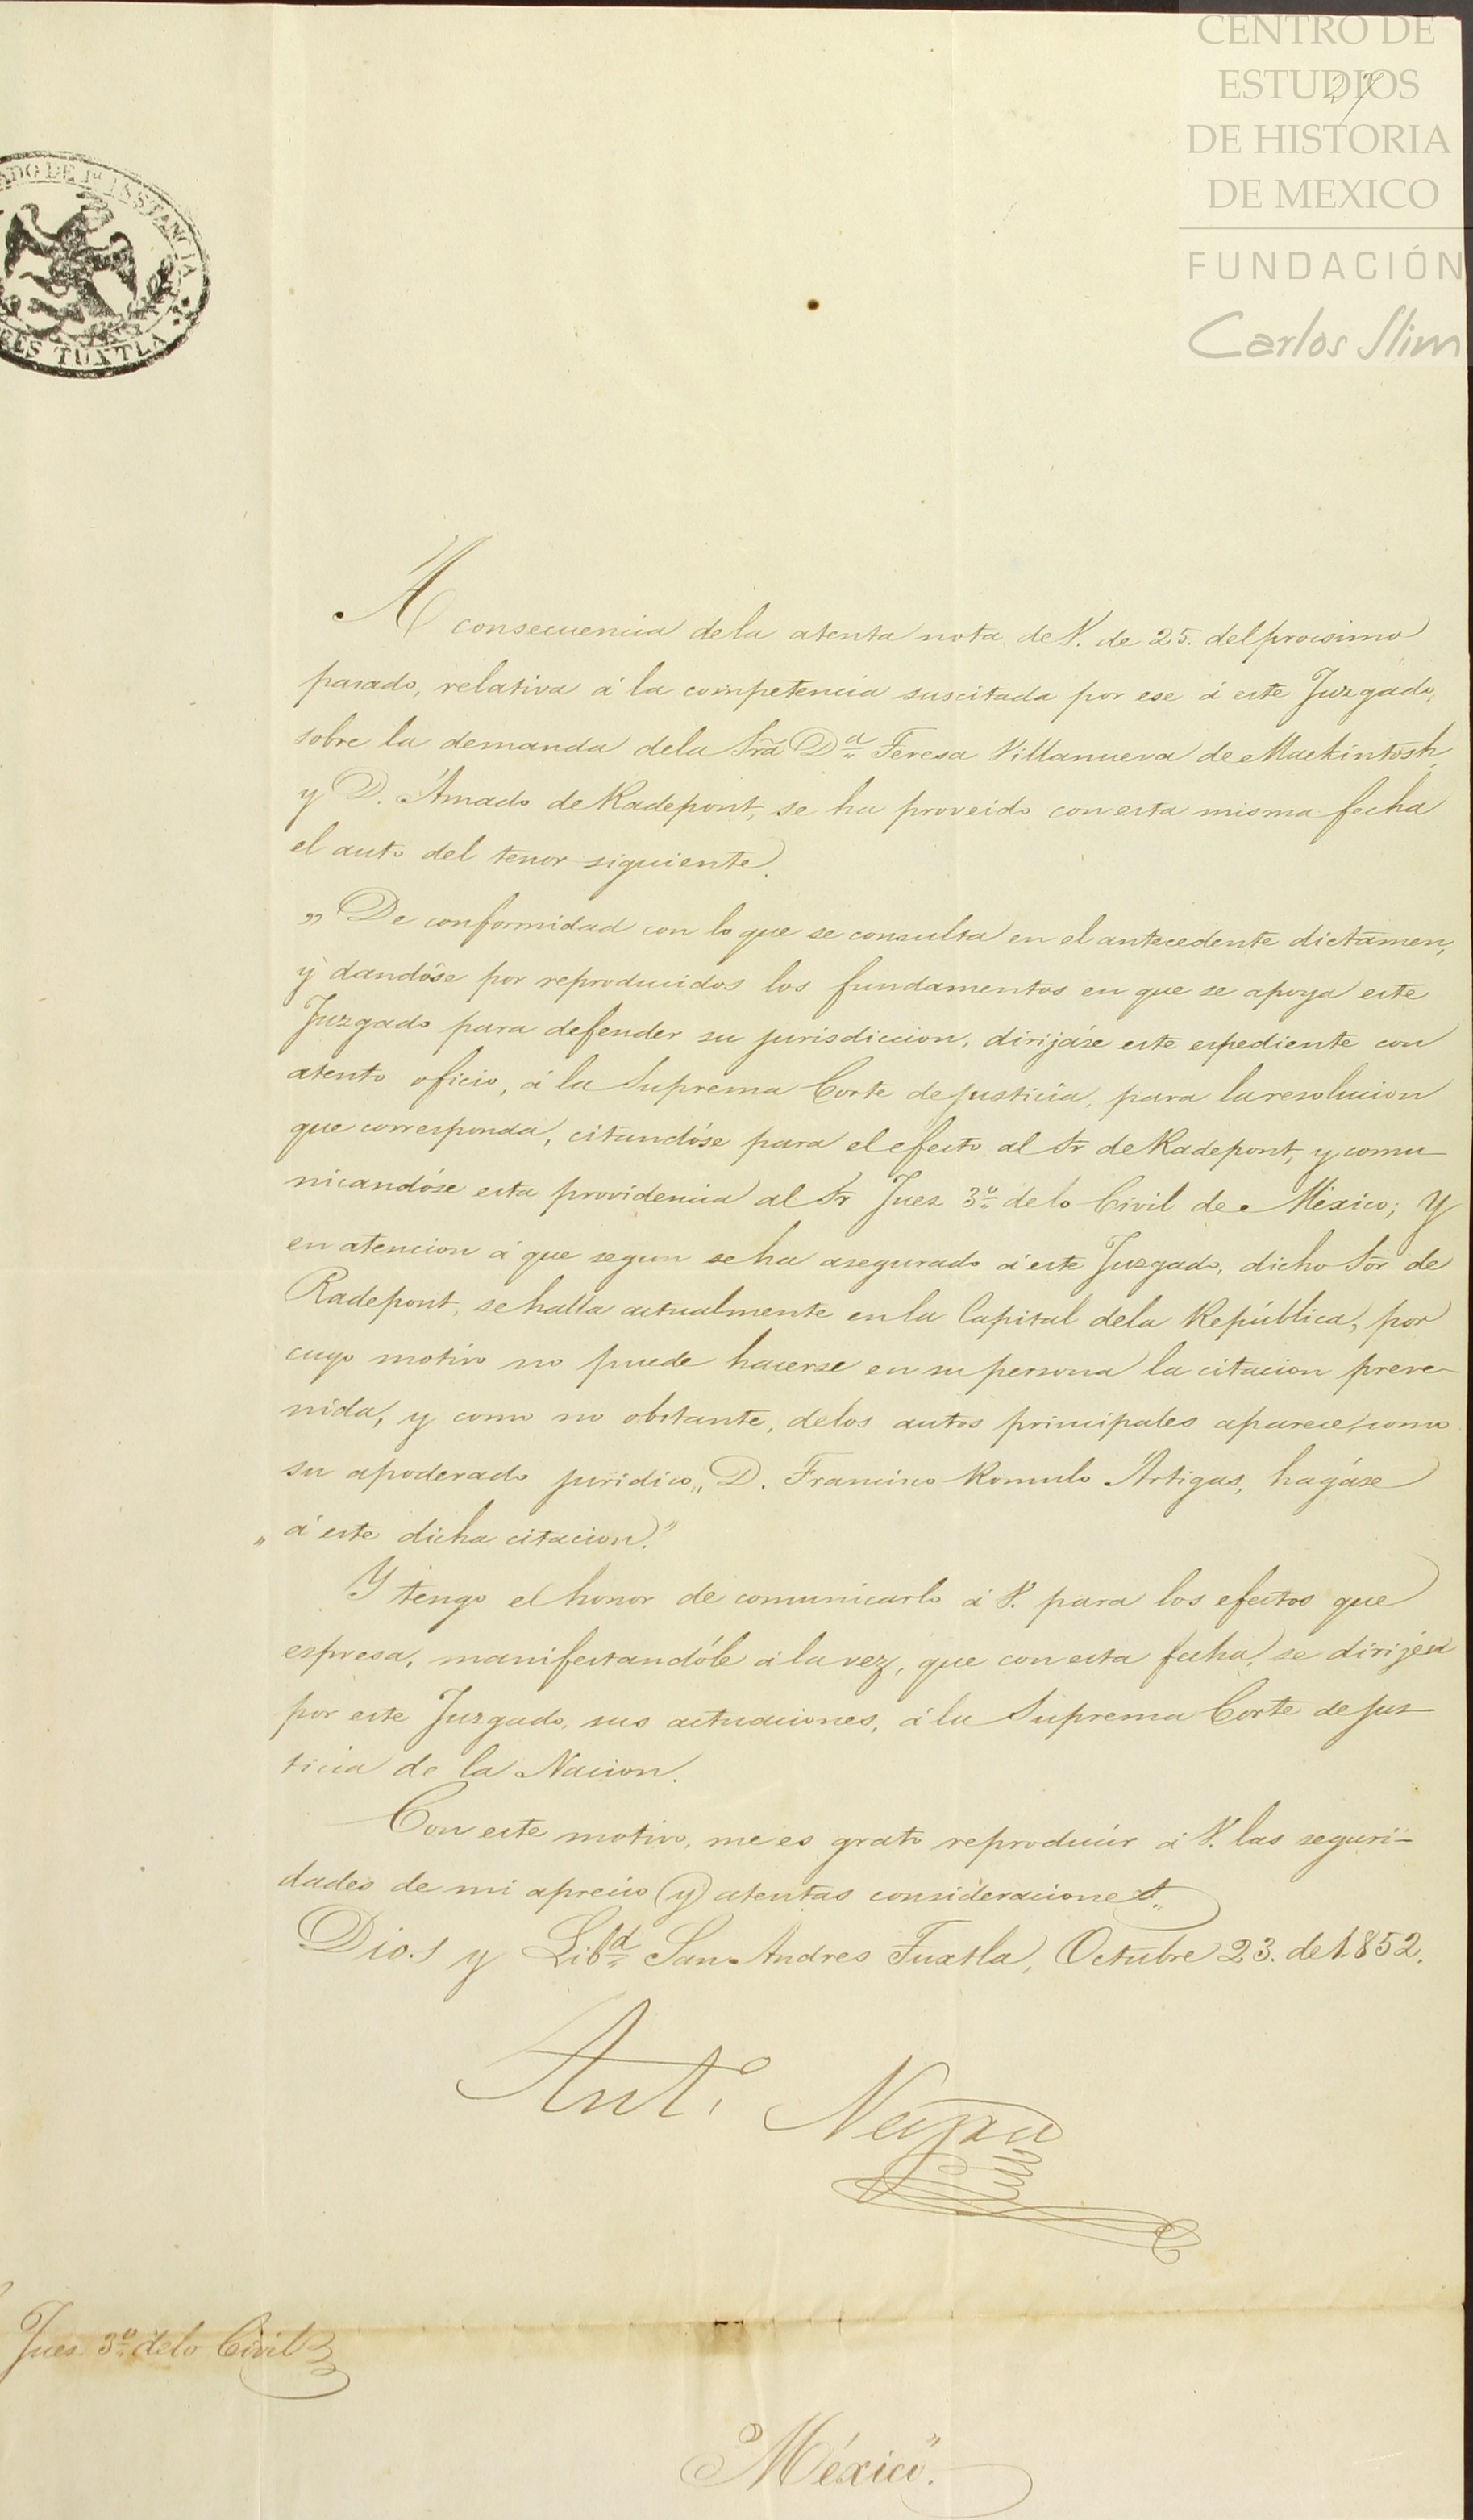 CENTRO DE
ESTUDIOS
DE HISTORIA
DE MEXICO
FUNDACIÓN
Carlos Slim
ADO DE 1ª INSTANCIA
RES TUXTLA
A consecuencia dela atenta nota de V. de 25. del procsimo
pasado, relativa á la competencia suscitada por ese á este Juzgado,
sobre la demanda dela Srã Dª Teresa Villanueva de Mackintosh,
y D. Amado de Radepont, se ha proveido con esta misma fecha
el auto del tenor siguiente.
„ De conformidad con lo que se consulta en el antecedente dictamen,
y dandóse por reproducidos los fundamentos en que se apoya este
Juzgado para defender su jurisdiccion, dirijáse este espediente con
atento oficio, á la Suprema Corte de justicia, para la resolucion
que corresponda, citandóse para el efecto al Sr de Radepont, y comu-
nicandóse esta providencia al Sr Juez 3º delo Civil de México; Y
en atencion á que segun se ha asegurado á este Juzgado, dicho Sõr de
Radepont, se halla actualmente en la Capital dela República, por
cuyo motivo no puede hacerse en su persona la citacion preve-
nida, y como no obstante, delos autos principales aparece, como
su apoderado juridico„ D. Francisco Romulo Artigas, hagáse
„ á este dicha citacion."
Y tengo el honor de comunicarlo á V. para los efectos que
espresa, manifestandóle á la vez, que con esta fecha, se dirijen
por este Juzgado, sus actuaciones, á la Suprema Corte de jus-
ticia de la Nacion.
Con este motivo, me es grato reproducir á V. las seguri-
dades de mi aprecio (y) atentas consideraciones.
Dios y Libᵈ San Andres Tuxtla, Octubre 23. de 1852.
Ant.
Juez 3º delo Civil
"México".